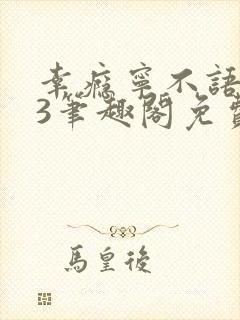 幸瘾宁不語
3筆趣閣免費
馬皇後